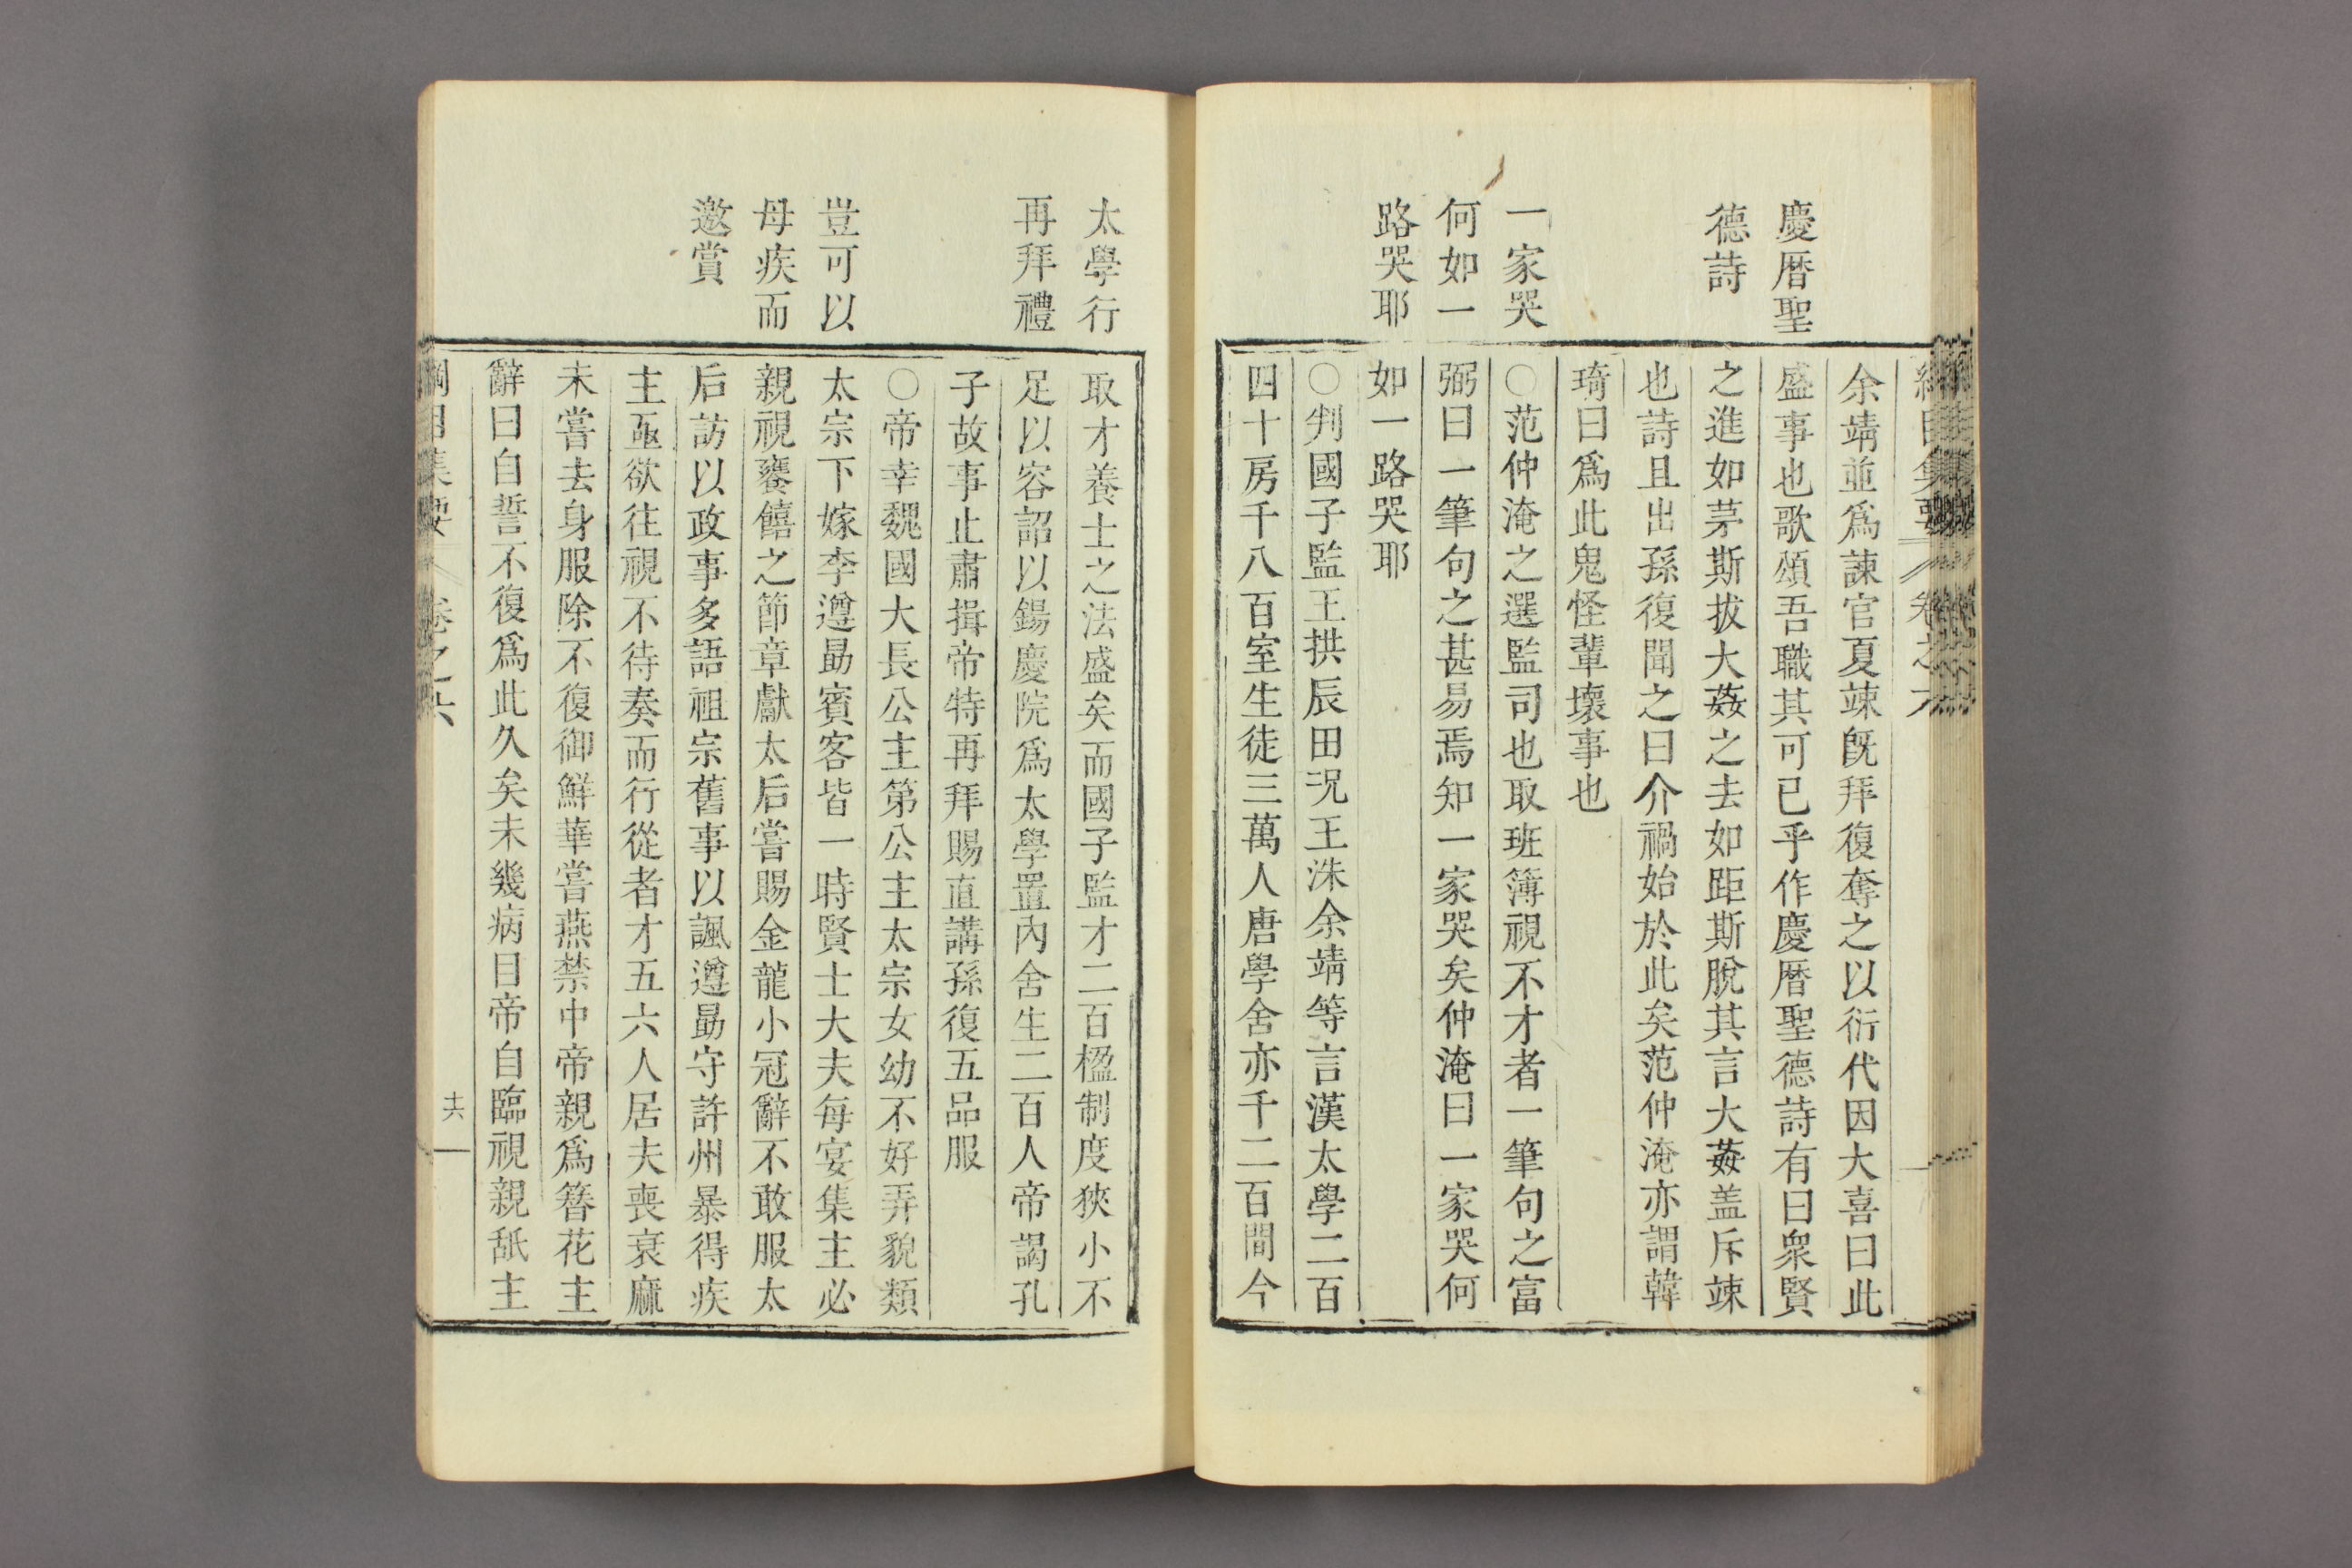 慶曆聖
德詩
一家哭
何如一
路哭耶
余靖並爲諫官夏竦旣拜復奪之以衍代因大喜曰此
盛事也歌頌吾職其可已乎作慶曆聖德詩有曰衆賢
之進如茅斯拔大姦之去如距斯脫其言大姦盖斥竦
也詩且出孫復聞之曰介禍始於此矣范仲淹亦謂韓
琦曰爲此鬼怪輩壞事也
○范仲淹之選監司也取班簿視不才者一筆句之富
弼曰一筆句之甚易焉知一家哭矣仲淹曰一家哭何
如一路哭耶
○判國子監王拱辰田況王洙余靖等言漢太學二百
四十房千八百室生徒三萬人唐學舍亦千二百間今
太學行
再拜禮
豈可以
母疾而
邀賞
取才養士之法盛矣而國子監才二百楹制度狹小不
足以容詔以錫慶院爲太學置內舍生二百人帝謁孔
子故事止肅揖帝特再拜賜直講孫復五品服
○帝幸魏國大長公主第公主太宗女幼不好弄貌類
太宗下嫁李遵勗賓客皆一時賢士大夫每宴集主必
親視饔饎之節章獻太后嘗賜金龍小冠辭不敢服太
后訪以政事多語祖宗舊事以諷遵勗守許州暴得疾
主亟欲往視不待奏而行從者才五六人居夫喪衰麻
未嘗去身服除不復御鮮華嘗燕禁中帝親爲簪花主
辭曰自誓不復爲此久矣未幾病目帝自臨視親舐主
綱目集要 卷之六
十六